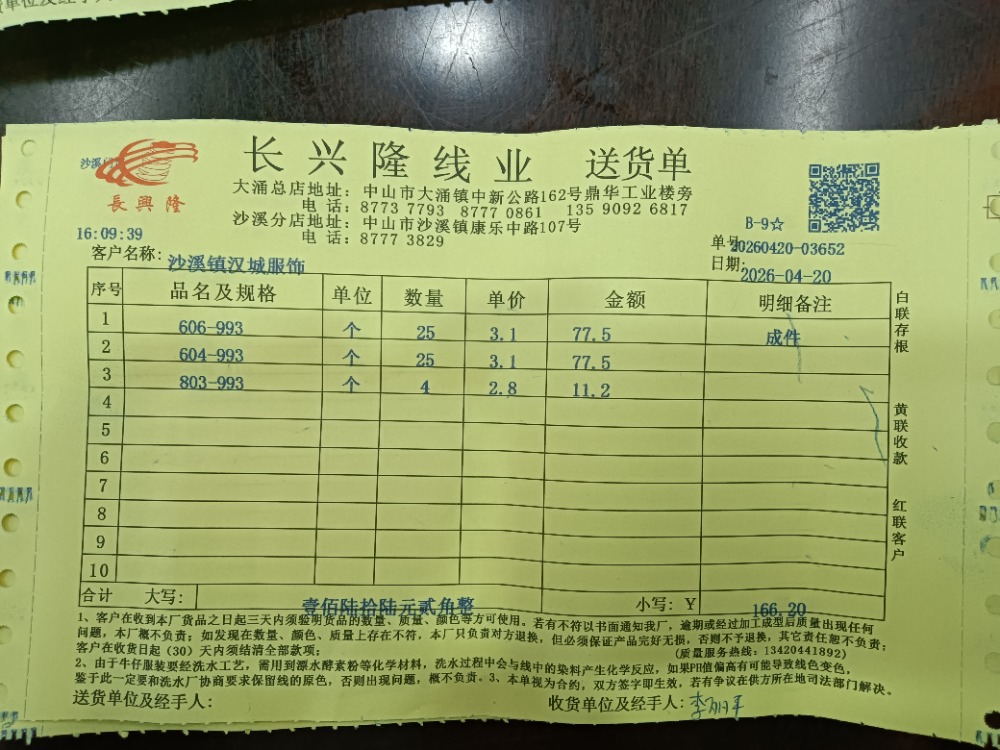 单位及经手人
沙溪
長興隆
长兴隆线业 送货单
大涌总店地址：中山市大涌镇中新公路162号鼎华工业楼旁
电话：8773 7793 8777 0861 135 9092 6817
沙溪分店地址：中山市沙溪镇康乐中路107号
电话：8777 3829
B-9☆
16:09:39
单号20260420-03652
客户名称：沙溪镇汉城服饰
日期：2026-04-20
序号 品名及规格 单位 数量 单价 金额 明细备注
1 606-993 个 25 3.1 77.5 成件
2 604-993 个 25 3.1 77.5
3 803-993 个 4 2.8 11.2
4
5
6
7
8
9
10
合计 大写：壹佰陆拾陆元贰角整 小写：￥166.20
白联存根
黄联收款
红联客户
1、客户在收到本厂货品之日起三天内须验明货品的数量、质量、颜色等方可使用。若有不符以书面通知我厂，逾期或经过加工成型后质量出现任何
问题，本厂概不负责；如发现在数量、颜色、质量上存在不符，本厂只负责对方退换，但必须保证产品完好无损，否则不予退换，其它责任恕不负责；
客户在收货日起（30）天内须结清全部款项； （质量服务热线：13420441892）
2、由于牛仔服装要经洗水工艺，需用到漂水酵素粉等化学材料，洗水过程中会与线中的染料产生化学反应，如果PH值偏高有可能导致线色变色，
鉴于此一定要和洗水厂协商要求保留线的原色，否则出现问题，概不负责。3、本单视为合约，双方签字即生效，若有争议在供方所在地司法部门解决。
送货单位及经手人： 收货单位及经手人：